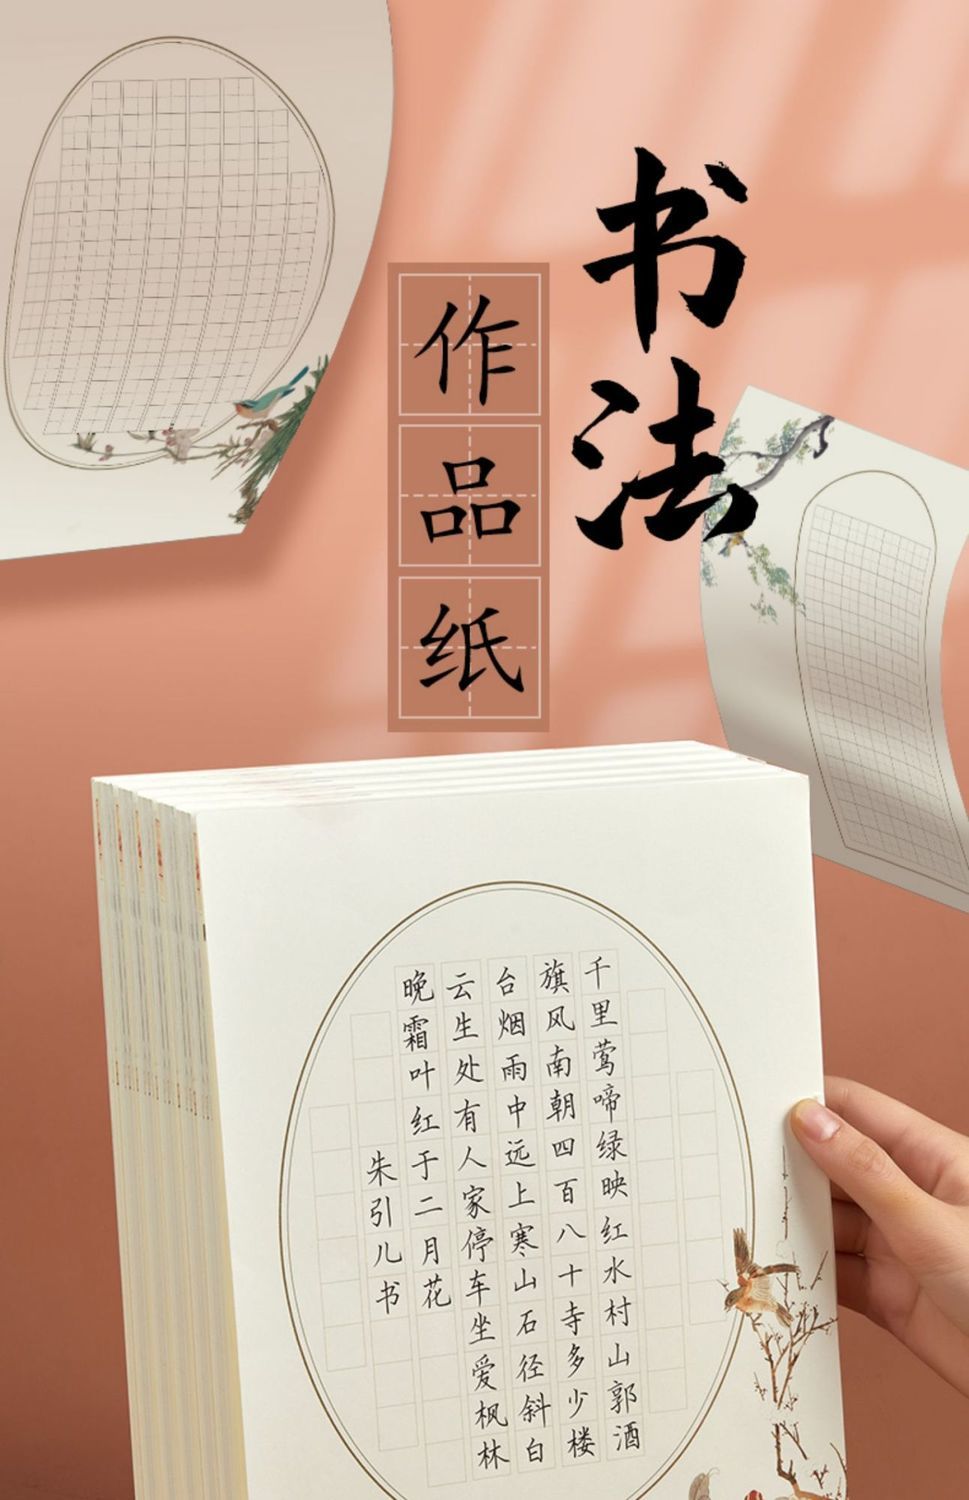 书法
作品纸
千里莺啼绿映红水村山郭酒
旗风南朝四百八十寺多少楼
台烟雨中远上寒山石径斜白
云生处有人家停车坐爱枫林
晚霜叶红于二月花
朱引儿书